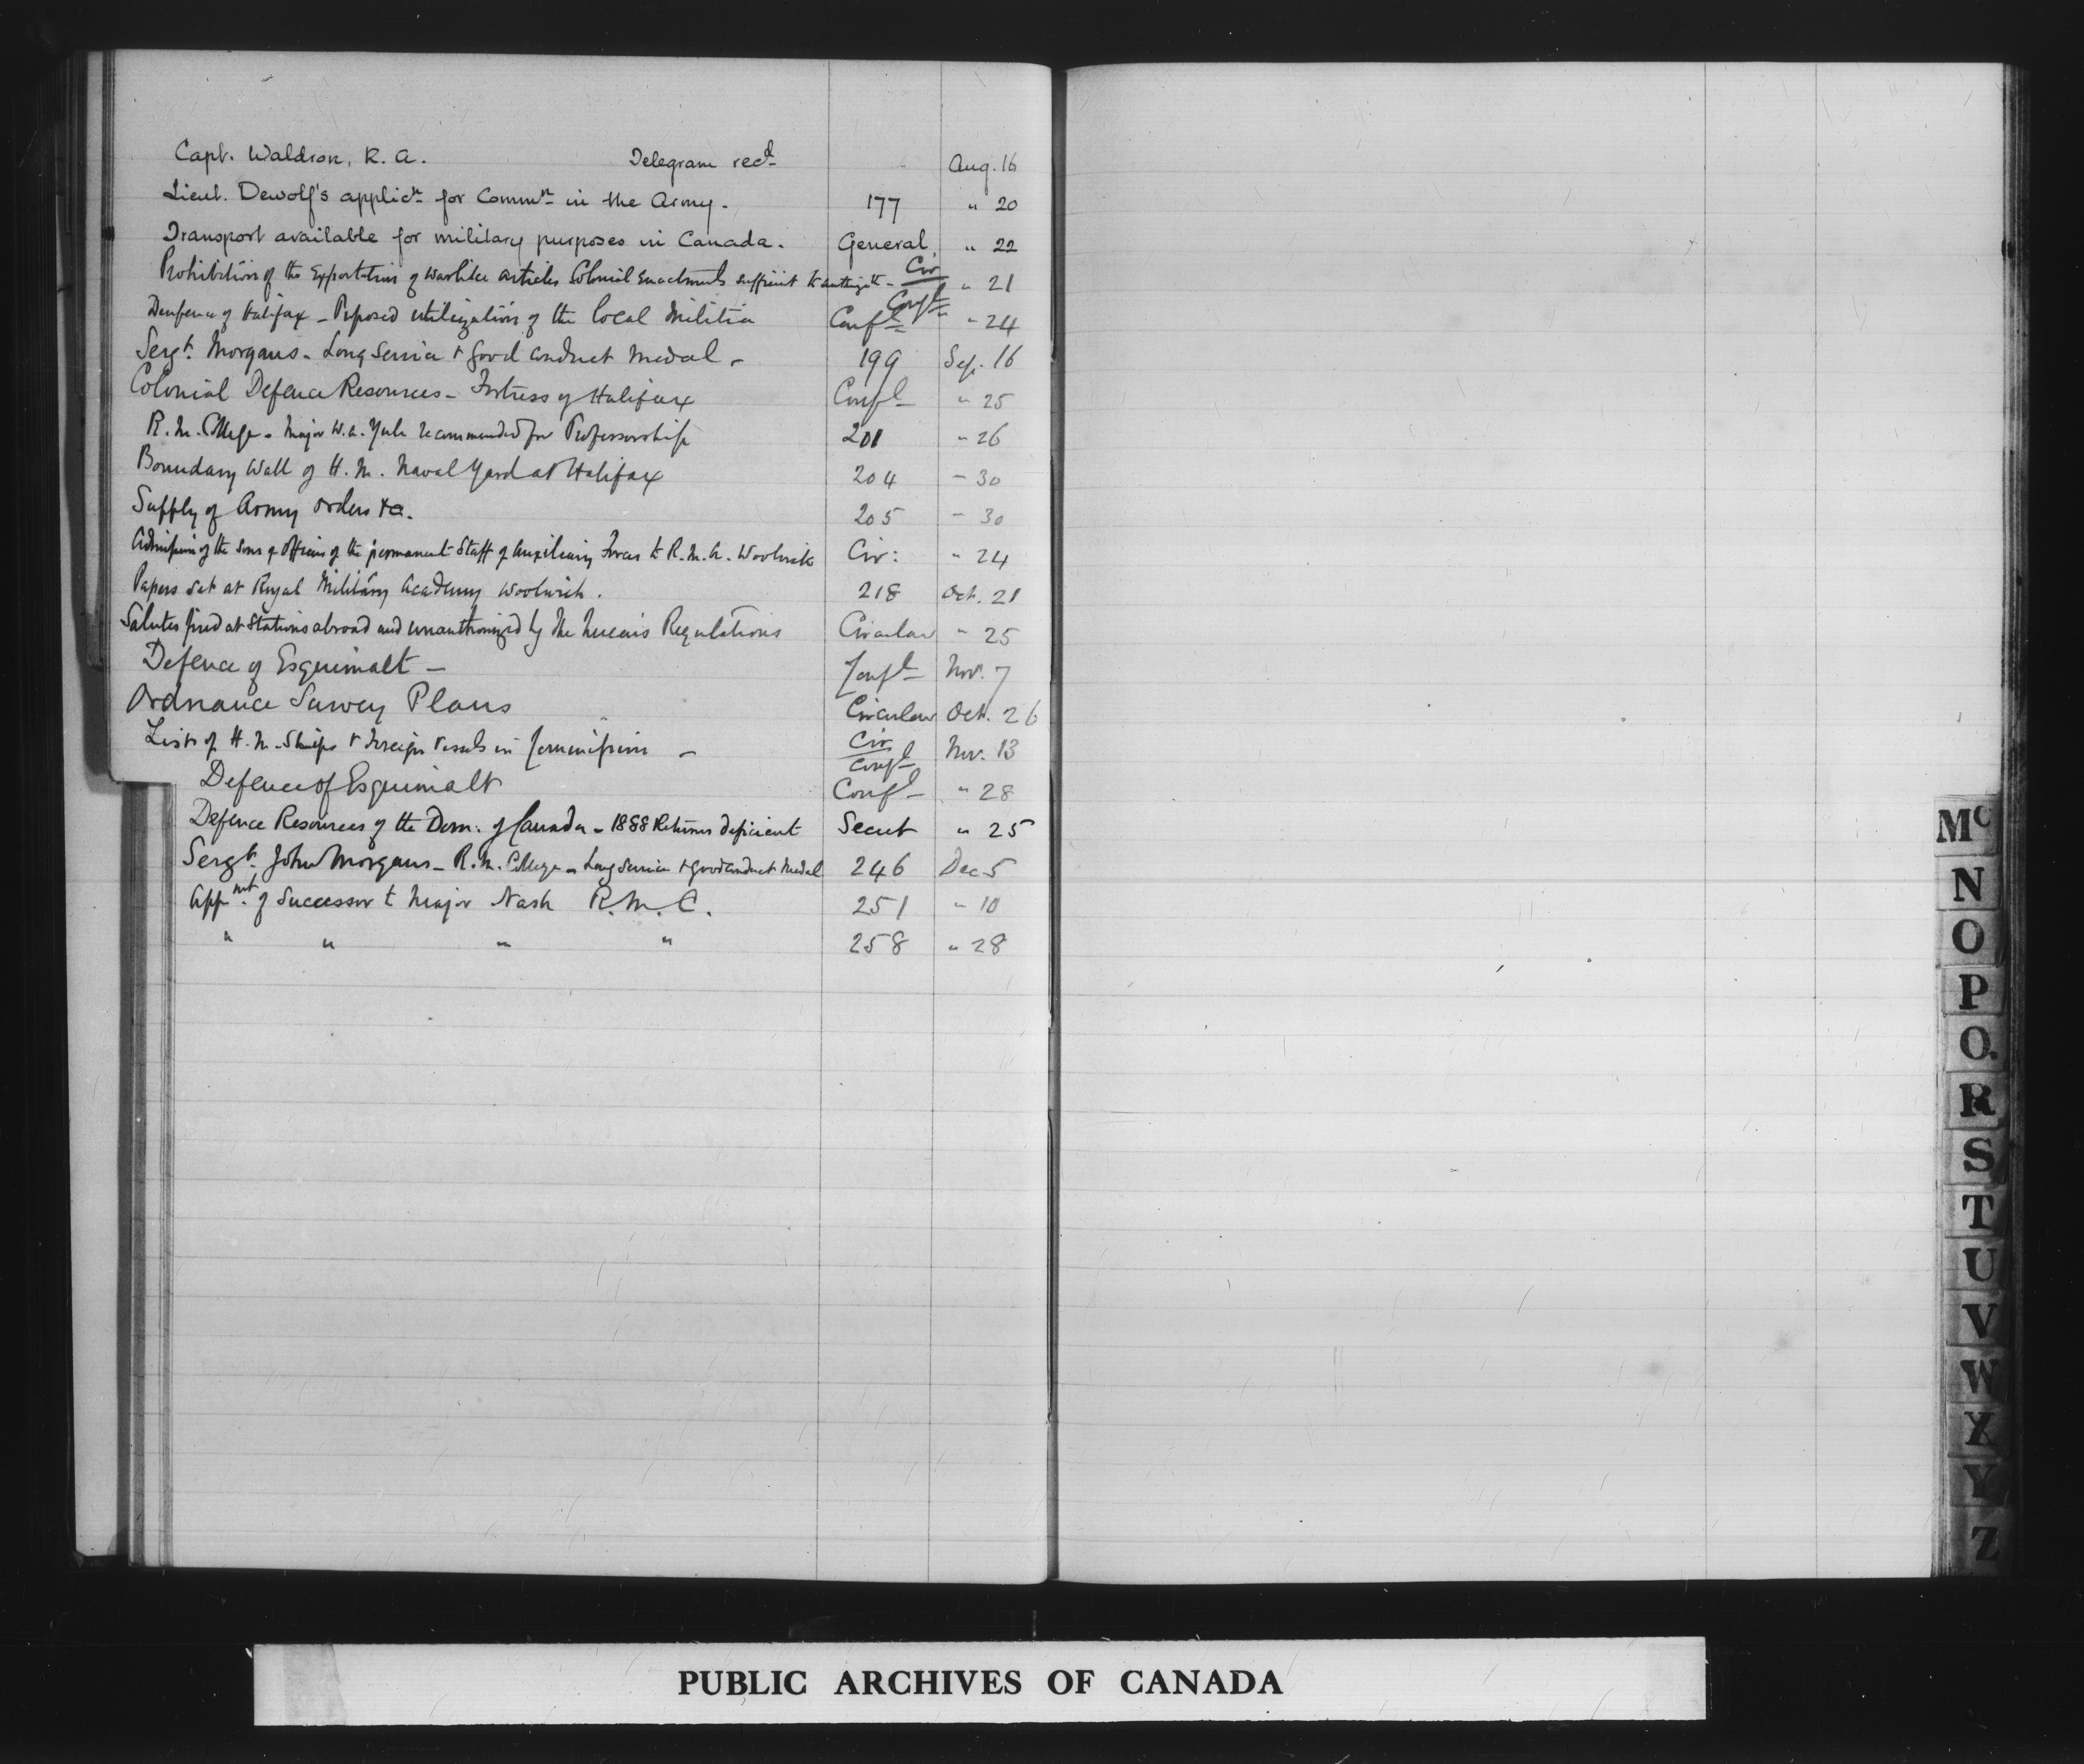 Capt. Waldron, R. A. Telegram recd Aug. 16
Lieut. Dewolf's applicn for Commn in the Army. 177 " 20
Transport available for military purposes in Canada. General " 22
Prohibition of the Exportation of warlike articles Colonial Enactments sufficient to authorize it - Cir Confl " 21
Denfence of Halifax - Proposed utilization of the local Militia Confl " 24
Sergt. Morgans - Long Service & Good Conduct Medal - 199 Sep. 16
Colonial Defence Resources - Fortress of Halifax Confl " 25
R. M. College - Major W. A. Yule recommended for Professorship 201 " 26
Boundary Wall of H. M. Naval Yard at Halifax 204 " 30
Supply of Army Orders &c. 205 " 30
Admission of the Sons of Officers of the permanent Staff of Auxiliary Forces to R. M. A. Woolwich Cir: " 24
Papers set at Royal Military Academy Woolwich. 218 Oct. 21
Salutes fired at Stations abroad and unauthorized by the Queen's Regulations Circular " 25
Defence of Esquimalt - Confl Nov. 7
Ordnance Survey Plans Circular Oct. 26
Lists of H. M. Ships & Foreign Vessels in Commission - Cir Confl Nov. 13
Defence of Esquimalt Confl " 28
Defence Resources of the Dom: of Canada - 1888 Returns deficient Secret " 25
Sergt. John Morgans - R. M. College - Long Service & Good Conduct Medal 246 Dec 5
Appmt. of Successor to Major Nash R. M. C. 251 " 10
" " " " 258 " 28
Mc
N
O
P
Q.
R
S
T
U
V
W
X
Y
Z
PUBLIC ARCHIVES OF CANADA